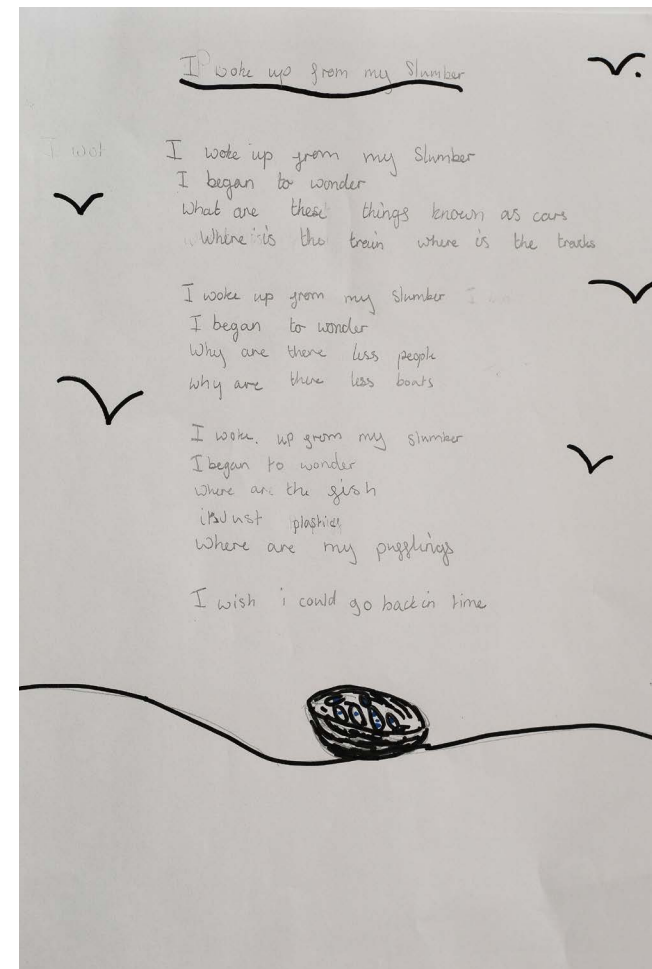 I woke up from my Slumber
I wok
I woke up from my Slumber
I began to wonder
What are these things known as cars
Where is the train where is the tracks
I woke up from my slumber I
I began to wonder
Why are there less people
why are there less boats
I woke. up from my slumber
I began to wonder
where are the fish
its Just plastic
Where are my pufflings
I wish i could go back in time